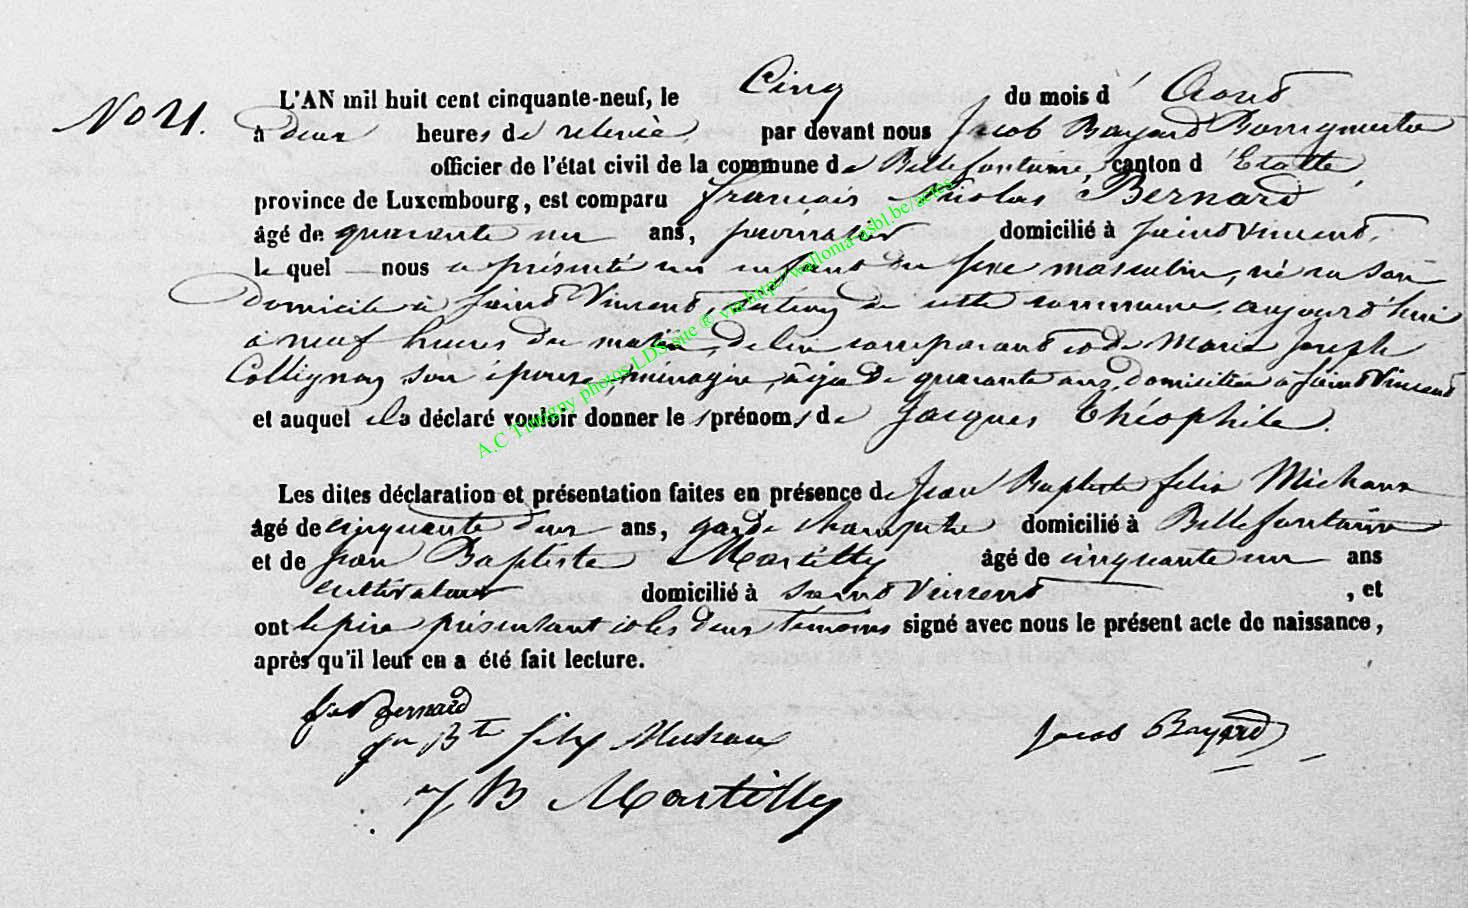 No 21.
L'AN mil huit cent cinquante-neuf, le Cinq du mois d' Aout
à deux heures de relevée, par devant nous Jacob Bayard Bourgmestre
officier de l'état civil de la commune de Bellefontaine, canton d' Etalle,
province de Luxembourg, est comparu françois Nicolas Bernard
âgé de quarante un ans, journalier domicilié à Saint Vincent,
le quel nous a présenté un enfant du sexe masculin, né en son
domicile à Saint Vincent, section de cette commune, aujourd'hui
à neuf heures du matin, de lui comparant et de Marie Joseph
Collignon son épouse, ménagère, agée de quarante ans, domiciliée à Saint Vincent
et auquel il a déclaré vouloir donner les prénoms de Jacques Théophile.
Les dites déclaration et présentation faites en présence de Jean Baptiste felix Michaux
âgé de cinquante deux ans, garde champetre domicilié à Bellefontaine
et de Jean Baptiste Martilly âgé de cinquante un ans
cultivateur domicilié à Saint Vincent, et
ont le père présentant et les deux témoins signé avec nous le présent acte de naissance,
après qu'il leur en a été fait lecture.
Bernard
Jn Bte felix Michaux Jacob Bayard
J B Martilly
A.C Tintigny photos LDS site ® via http://wallonia-asbl.be/actes